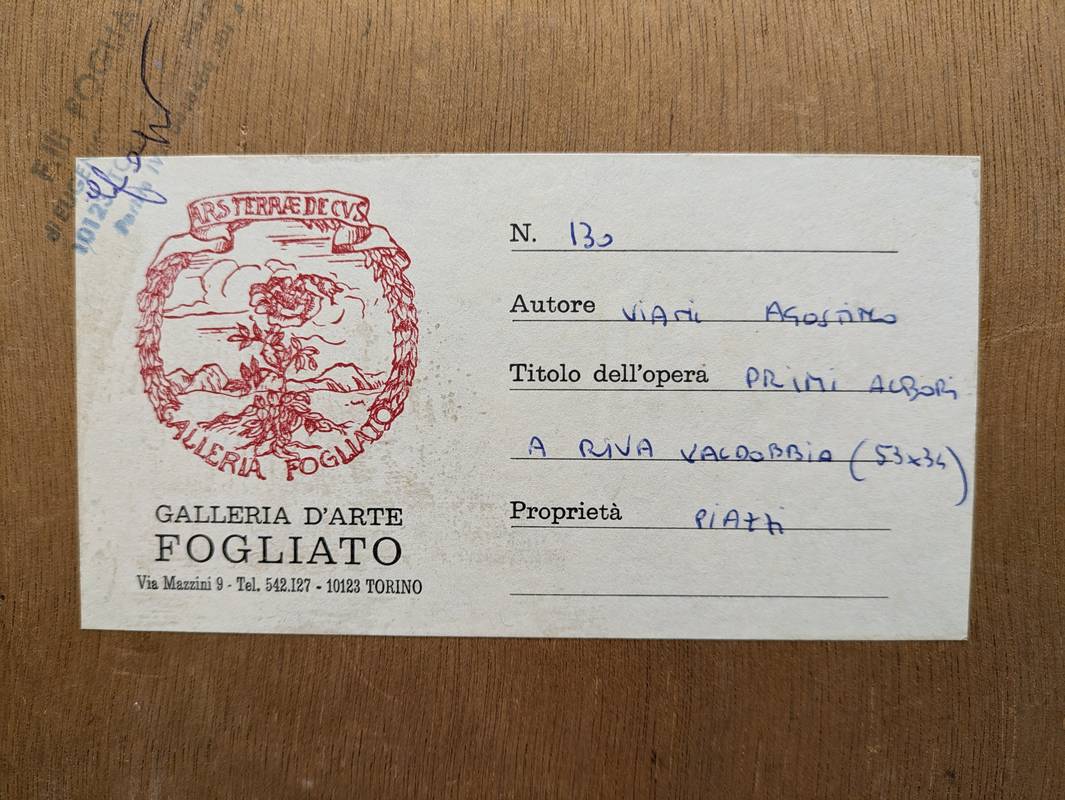 ARS TERRÆ DECVS
GALLERIA FOGLIATO
GALLERIA D'ARTE
FOGLIATO
Via Mazzini 9 - Tel. 542.127 - 10123 TORINO
N. 130
Autore VIANI AGOSTINO
Titolo dell'opera PRIMI ALBORI
A RIVA VALDOBBIA (53x34)
Proprietà PIAZZI
10123